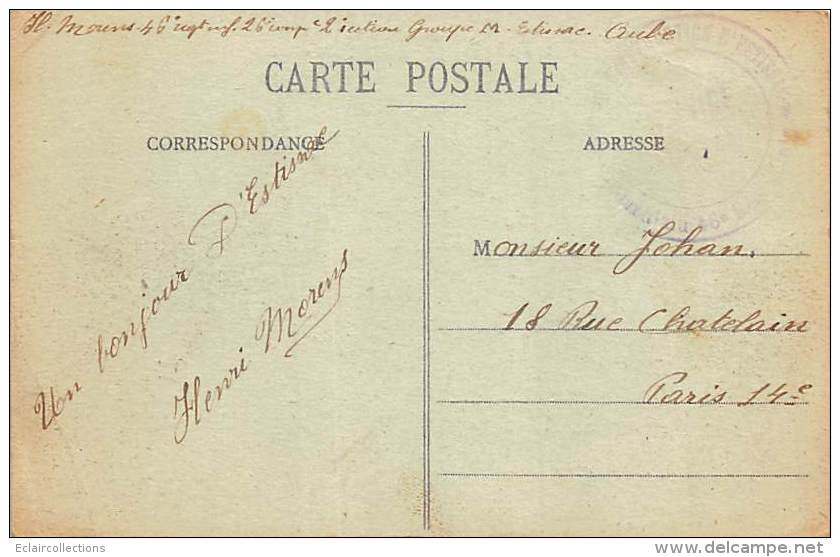 H. Morens 46e regt inf. 26e comp e 2e section Groupe M - Estissac. Aube
CARTE POSTALE
CORRESPONDANCE
ADRESSE
Un bonjour D'Estissac
Henri Morens
Monsieur Johan,
18 Rue Chatelain
Paris 14e
Eclaircollections
delcampe.net